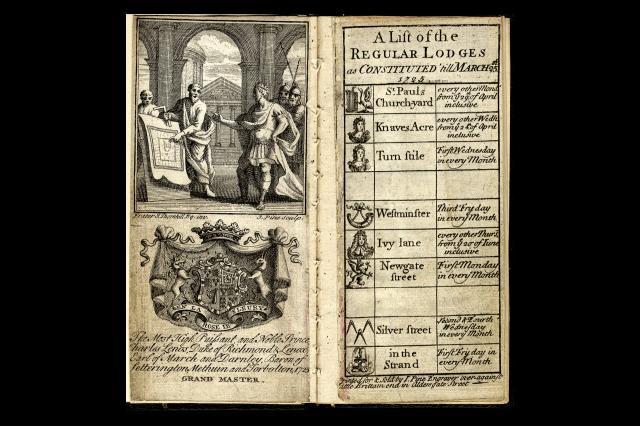 Frater J. Thornhill Eq. inv.
J. Pine Sculp.
EN LA ROSE JE FLEURIE
The Most High, Puissant, and Noble Prince
Charles Lenox, Duke of Richmond & Lenox
Earl of March and Darnley, Baron of
Setterington Methuen and Torbolton, 1725
GRAND MASTER.
A List of the
REGULAR LODGES
as CONSTITUTED 'till MARCH 25th
1725
St. Pauls
Churchyard
every other Mond.
from ye 29 of April
inclusive
Knaves Acre
every other Wedn.
from ye 28 of April
inclusive
Turn stile
First Wednesday
in every Month
Westminster
Third Fryday
in every Month
Ivy lane
every other Thurs.
from ye 20 of June
inclusive
Newgate
street
First Monday
in every Month
Silver street
Second & Fourth
Wednesday
in every Month
in the
Strand
First Fryday in
every Month
Printed for & Sold by I. Pine Engraver over against
Little Brittain end in Aldersgate Street